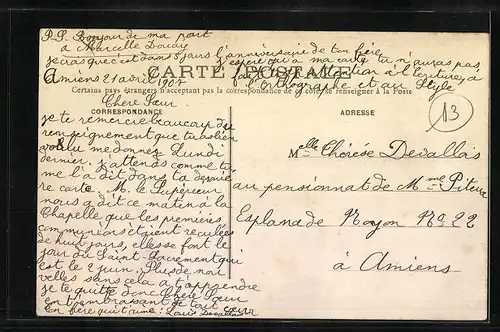 P.S. Bonjour de ma part
à Marcelle Douay
je crois que c'est dans 5 jours l'anniversaire de ton frère
j'espère qu'à ma carte tu n'auras pas
Amiens 21 avril 1907
à l'écriture, à
l'Orthographe et au Style
CARTE POSTALE
Certains pays étrangers n'acceptant pas la correspondance de ce côté, se renseigner à la Poste
CORRESPONDANCE
ADRESSE
13
Chère Sœur
je te remercie beaucoup du
renseignement que tu as bien
voulu me donner Lundi
dernier. j'attends comme tu
me l'a dit dans ta dernière
carte. M. le Supérieur
nous a dit ce matin à la
Chapelle que les premières
communions étaient reculées
de huit jours, elles se font le
jour du Saint Sacrement qui
est le 2 juin. Plus de nou
velles sans cela à t'apprendre
je te quitte donc Chère Sœur
en t'embrassant de tout cœur
Ton frère qui t'aime: Louis Devallois
Melle Thérèse Devallois
au pensionnat de Mme
Esplanade Noyon No 22
à Amiens